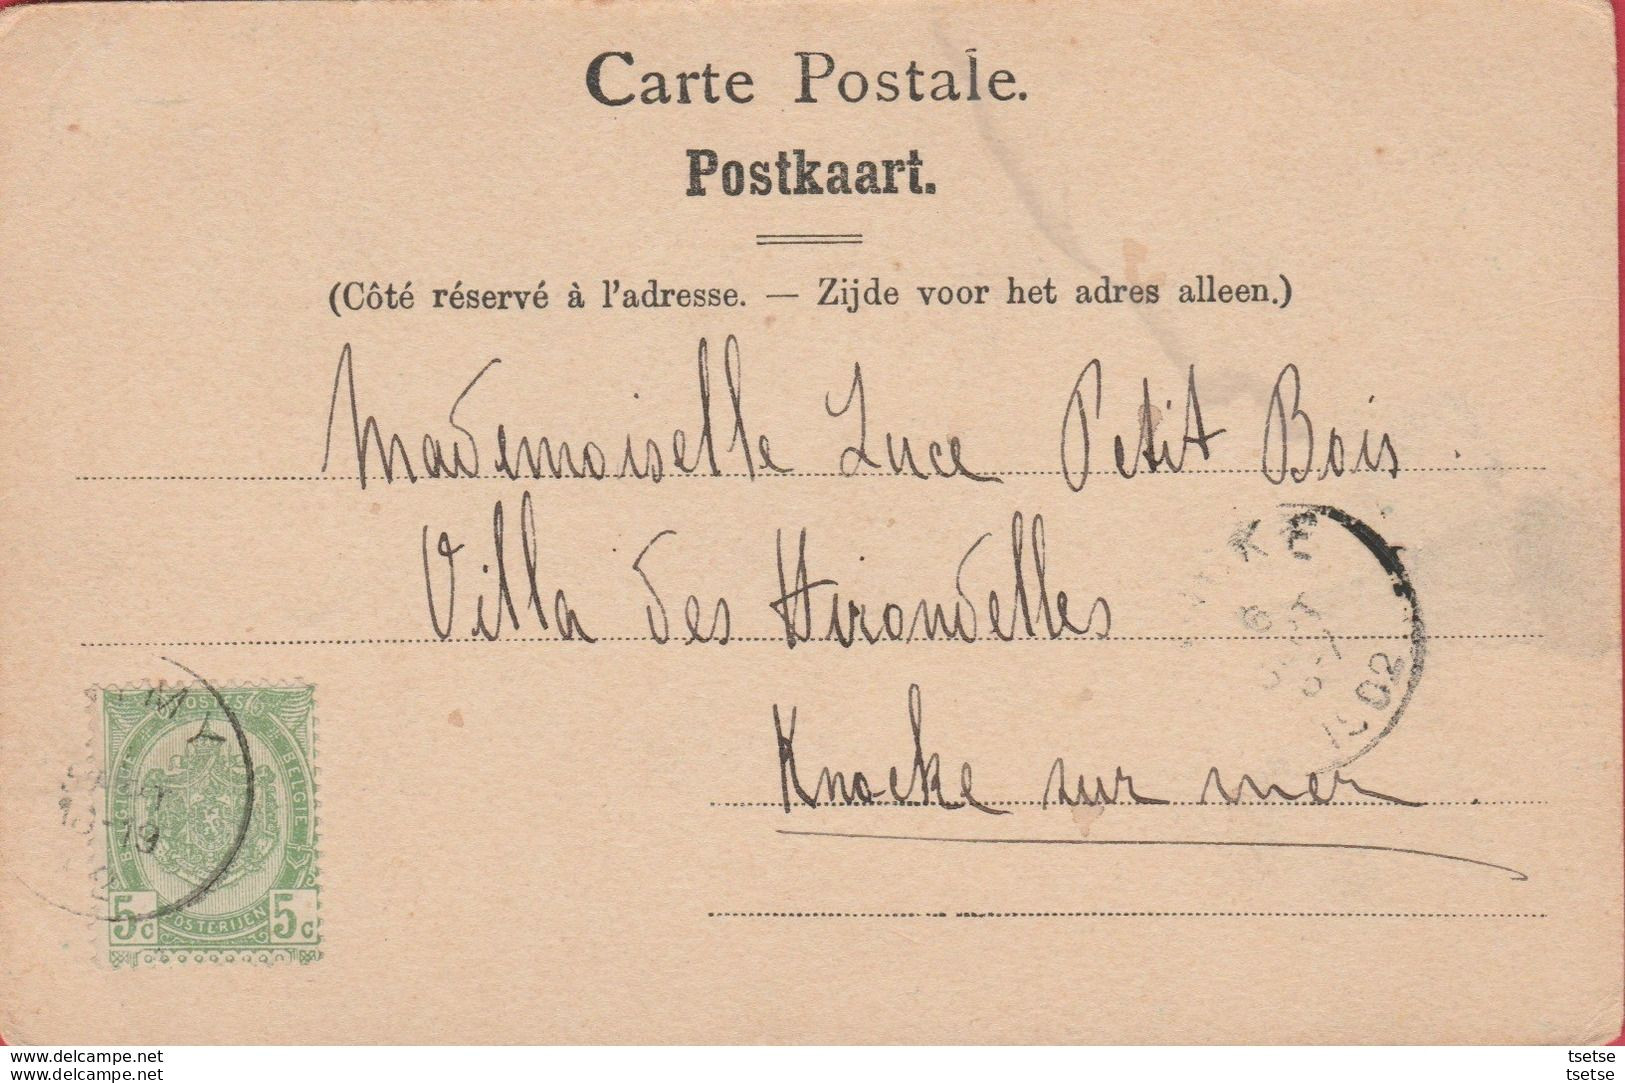 Carte Postale.
Postkaart.
(Côté réservé à l'adresse. — Zijde voor het adres alleen.)
Mademoiselle Luce Petit Bois.
Villa des Hirondelles
Knocke sur mer.
KE
6
1902
MY
19
POSTES
BELGIQUE
BELGIE
5c POSTERIJEN 5c
www.delcampe.net
www.delcampe.net
tsetse
tsetse